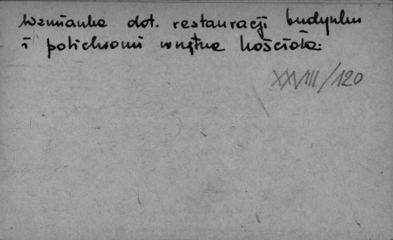 Wzmianka dot. restauracji budynku
i polichromii wnętrza kościoła.
XXVIII/120